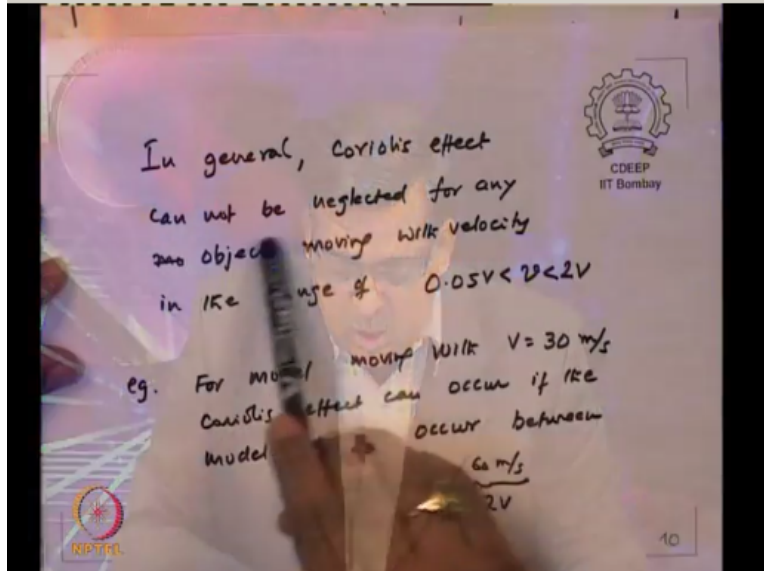 In general, Coriolis effect
can not be neglected for any
object moving with velocity
in the of 0.05V < v < 2V
eg. For moving with V = 30 m/s
Coriolis effect can occur if the
model occur between
60 m/s
2V
CDEEP
IIT Bombay
NPTEL
10